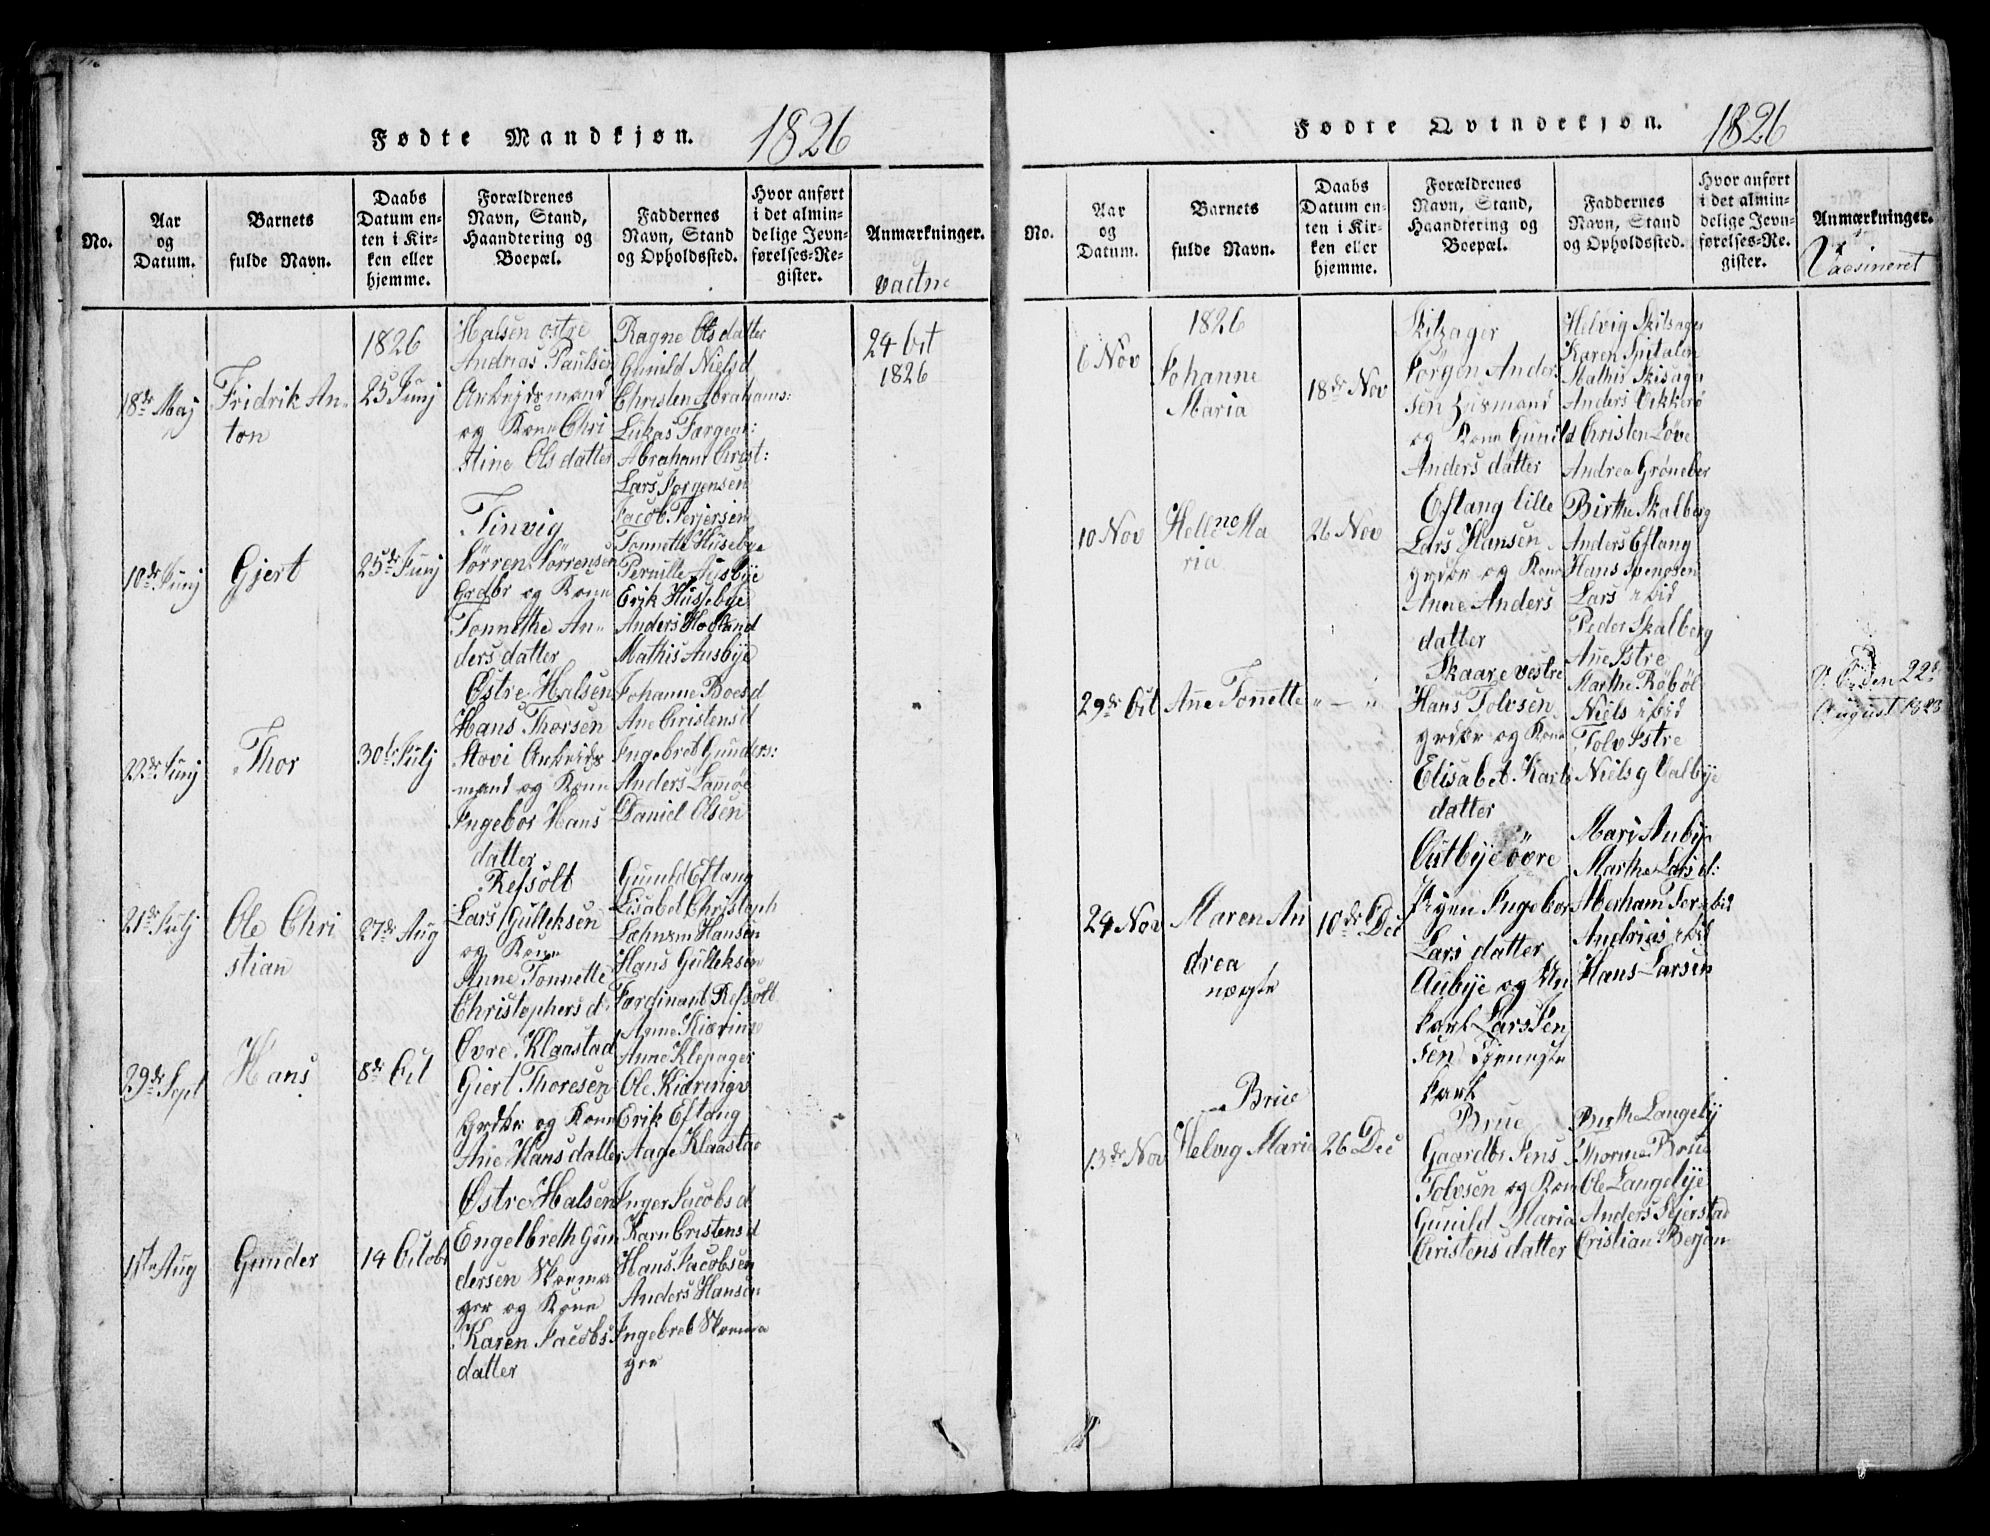 Fødte Mandkjøn. 1826
No.
Aar
og
Datum.
Barnets
fulde Navn.
Daabs
Datum en-
ten i Kir-
ken eller
hjemme.
Forældrenes
Navn, Stand,
Haandtering og
Boepæl.
Faddernes
Navn, Stand
og Opholdssted.
Hvor anført
i det almin-
delige Jevn-
førelses-Re-
gister.
Anmærkninger.
18de Maj
Fridrik An-
ton
1826
25 Junj
Halsen østre
Andrias Paulsen
Arbeidsmand
og Kone Chri
stine Olsdatter
Ragne Olsdatter
Gunild Nielsd
Christen Abrahams:
Lukas
Abraham Christ:
Lars Jorgensen
24 Oct
1826
10de Junj
Gjert
25de Junj
Tinvig
Sörren Sörrensen
Grdbr og Kone
Tonnethe An-
ders datter
Jacob Terjersen
Tonnette Husebye
Pernille Ausbye
Erik Hussebye
Anders Holand
Mathis Ausbye
22de Junj
Thor
30te Julj
Østre Halsen
Hans Thorsen
Arbeids
mand og Kone
Ingebor Hans
datter
Johanne Boesd
Ane Cristensd
Ingebret Gunders:
Anders
Daniel Olsen
21de Julj
Ole Chri
stian
27de Aug
Refsolt
Lars Gulliksen
og Kone
Anne Tonnette
Christophersd:
Gunild Eftang
Lisabet Christoph
Hansen
Hans Gulliksen
Fordinant Refsolt
29de Sept
Hans
8de Oct
Øvre Klaastad
Giert Thoresen
Grdbr og Kone
Ane Hans datter
Anne Kiæringe
Anne Klepager
Ole Kiæringe
Erik Eftang
Aage Klaastad
1ste Aug
Gunder
14 Octob
Østre Halsen
Engelbreth Gun
dersen Skoma
ger og Kone
Karen Jacobs
datter
Inger Jacobsd
Karn Cristensd
Hans Jacobsen
Anders Hansen
Ingebret Skoma
ger
Fødte Qvindekjøn. 1826
No.
Aar
og
Datum.
Barnets
fulde Navn.
Daabs
Datum en-
ten i Kir-
ken eller
hjemme.
Forældrenes
Navn, Stand,
Haandtering og
Boepæl.
Faddernes
Navn, Stand
og Opholdssted.
Hvor anført
i det almin-
delige Jevn-
førelses-Re-
gister.
Anmærkninger.
Vacsineret
6 Nov
1826
Johanne
Maria
18de Nov
Skilsager
Jörgen Ander
sen Husmand
og Kone Gunild
Anders datter
Helvig Skilsager
Karen Spitalen
Mathis Skisager
Anders Vikkerö
Christen Löve
Andrea Gröneber
10 Nov
Hellene Ma
ria
26 Nov
Eftang lille
Lars Hansen
grdbr og Kone
Anne Anders
datter
Birthe Skalberg
Anders Eftang
Hans
Lars ibid
Peder Skalberg
29de Oct
Ane Tonnette
" — "
Skaare vestre
Hans Tolvsen
grdbr og Kone
Elisabet Karls
datter
Ane Istre
Marthe Röböl
Niels ibid
Tolv Istre
Niels g Valbye
den 22de
August 1828
24 Nov
Maren An
drea
nægte
10de Dec
Östbye övre
Pigen Ingebor
Lars datter
Aubye og Un
karl Lars Jen
sen
karl
Mari Aubye
Marthe Larsd:
Aberham Tor ibid
Andrias ibid
Hans Larsen
Brue
13de Nov
Helvig Marie
26 Dec
Brue
Gaardbr Jens
Tolvsen og Kone
Gunild Maria
Christens datter
Birthe Langebÿ
Thorine Brue
Ole Langebye
Anders Sejerstad
Cristian Berjan